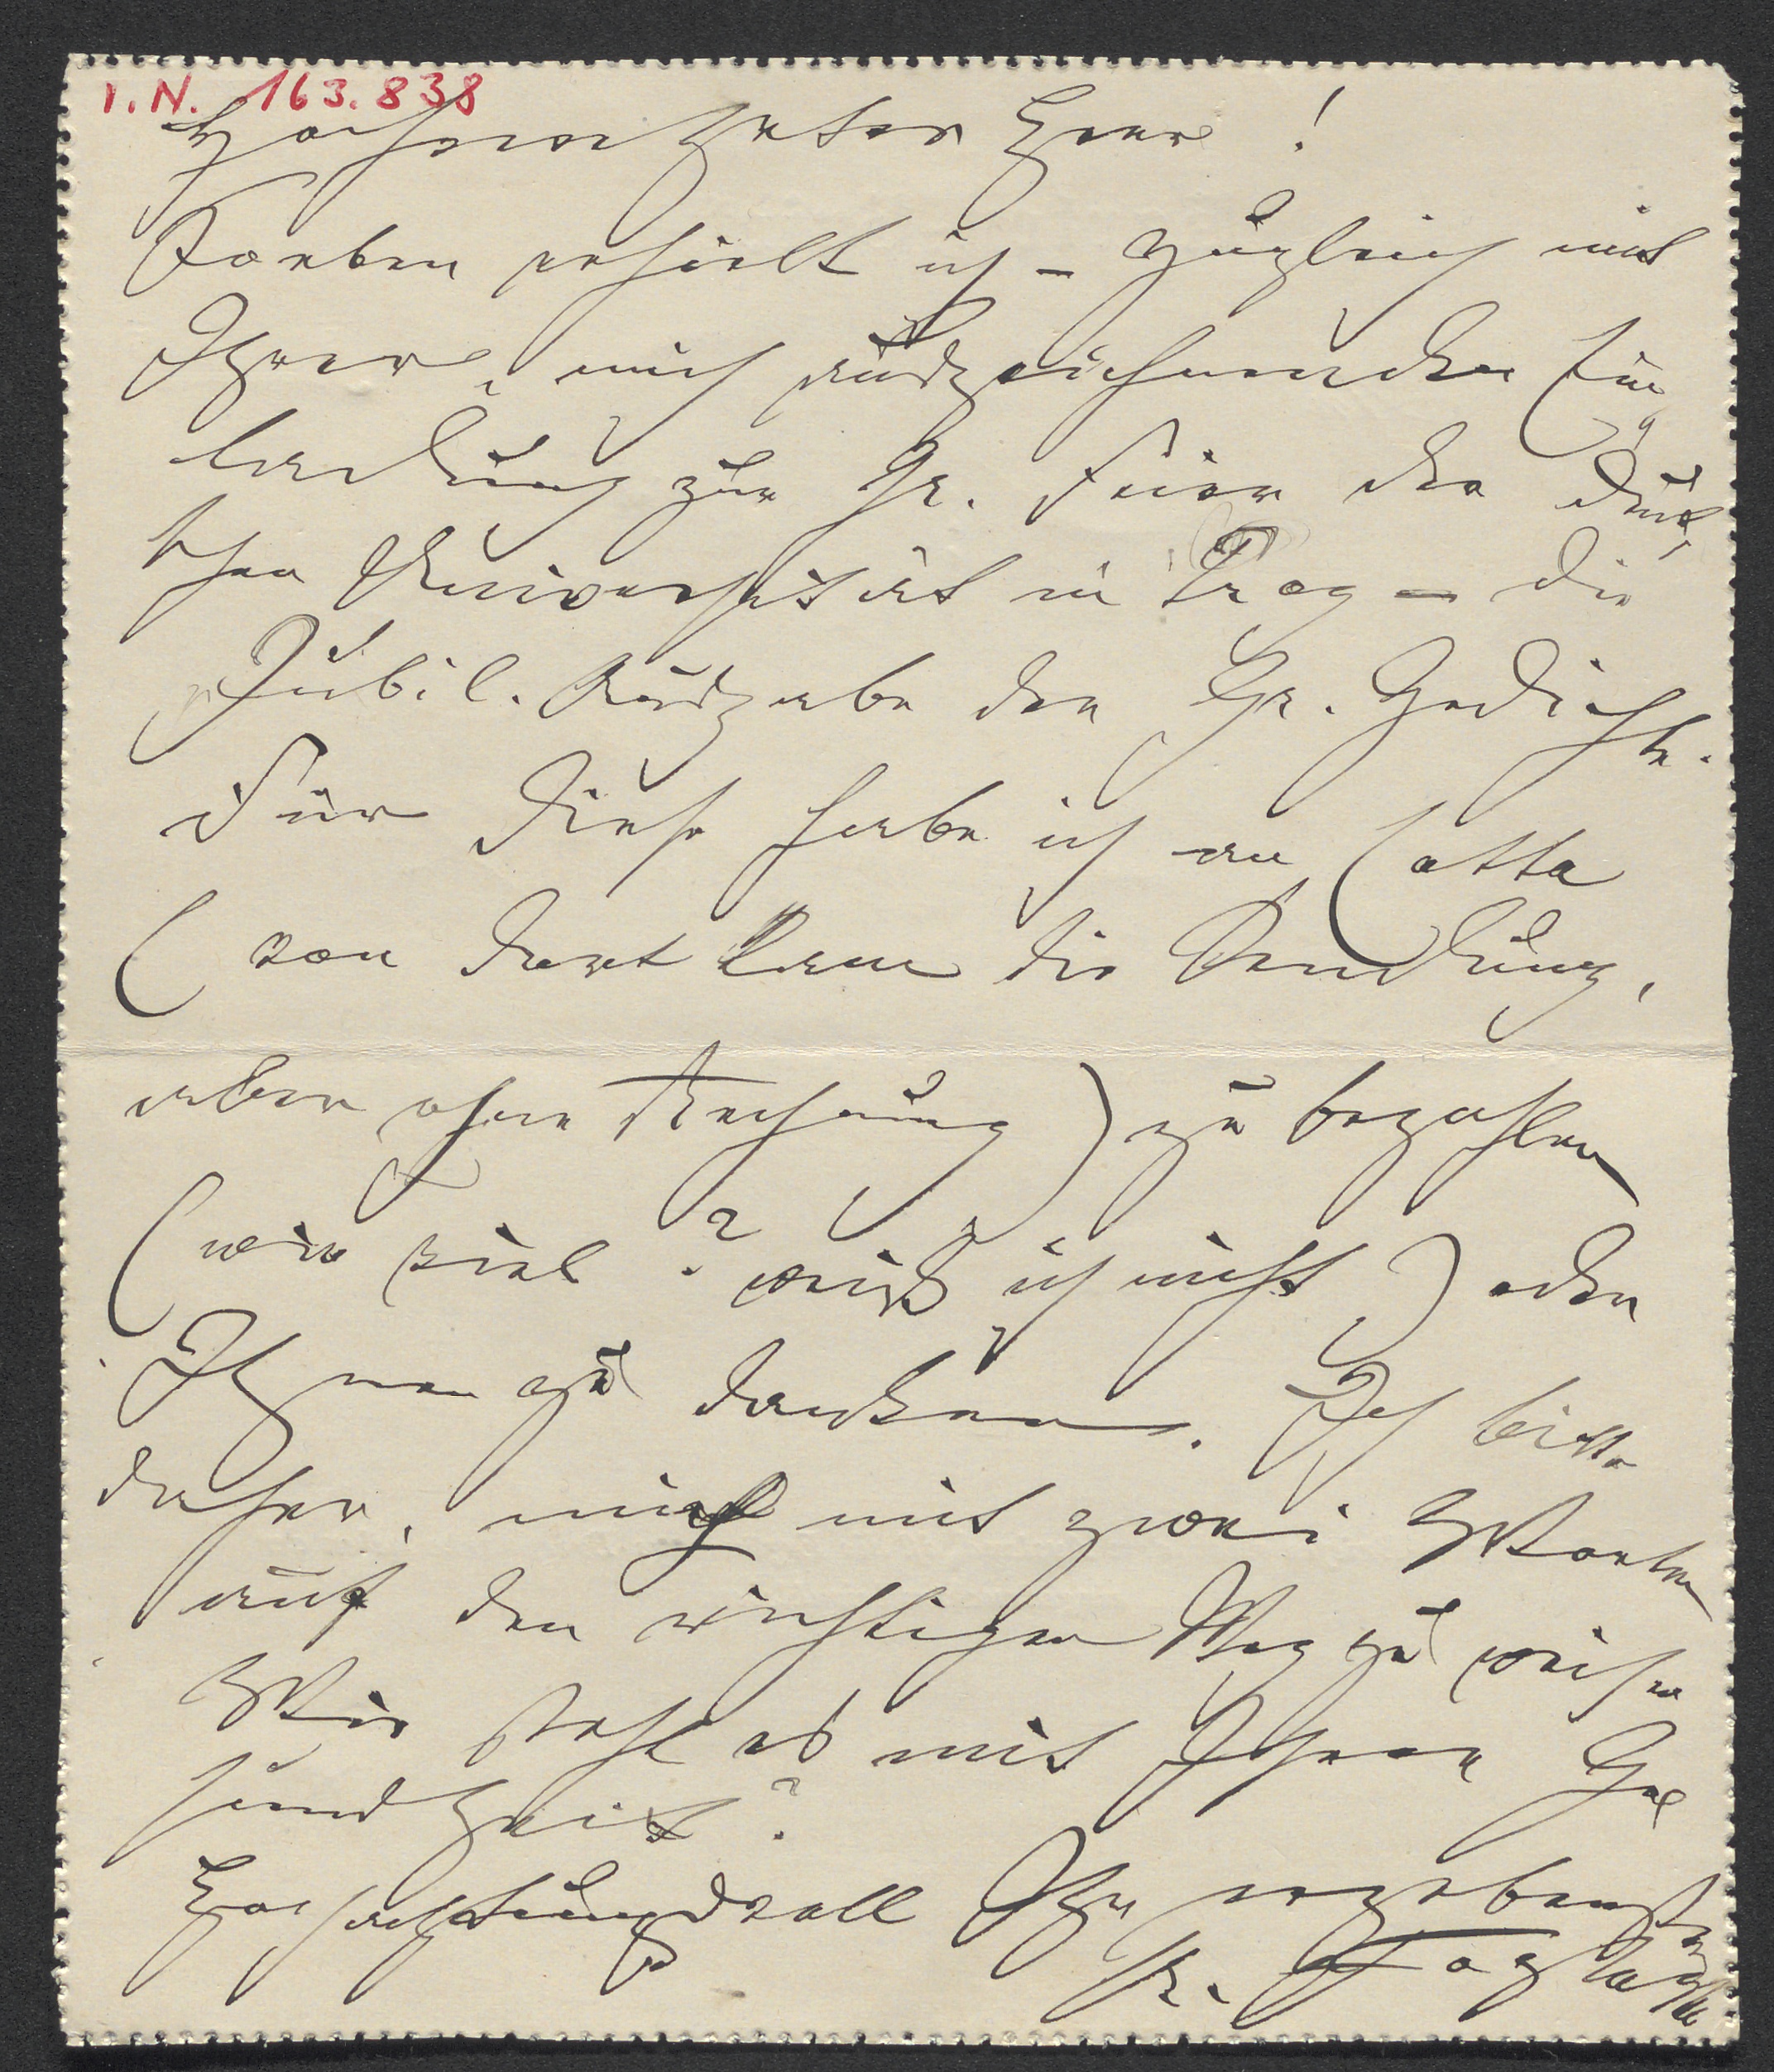 I.N. 163.838
Hochverehrter Herr!
Soeben erhielt ich – zugleich mit
Ihrer, mich auszeichnenden Ein-
ladung zur Gr. Feier der deut-
schen Universität in Prag – die
Jubil. Ausgabe der Gr. Gedichte.
Für diese habe ich an Cotta
(von dort kam die Sendung,
aber ohne Rechnung) zu bezahlen
(wie viel? weiß ich nicht) oder
Ihnen zu danken. Ich bitte
daher, mich mit zwei Worten
auf den richtigen Weg zu weisen
Wie steht es mit Ihrer Ge-
sundheit?
Hochachtungsvoll Ihr ergebenster